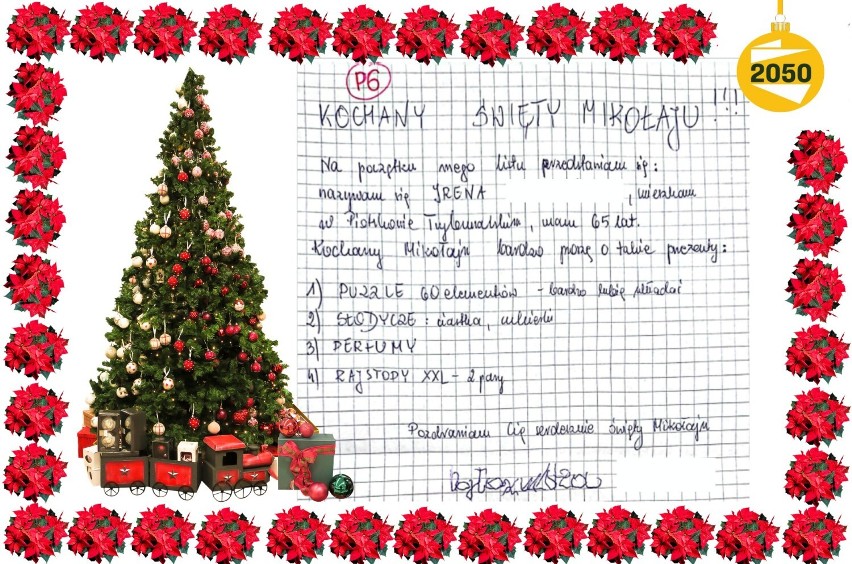 2050
P6
KOCHANY ŚWIĘTY MIKOŁAJU!!!
Na początku mego listu przedstawiam się:
nazywam się IRENA , mieszkam
w Piotrkowie Trybunalskim, mam 65 lat.
Kochany Mikołaju bardzo proszę o takie prezenty:
1) PUZZLE 60 elementów - bardzo lubię układać
2) SŁODYCZE: ciastka, cukierki
3) PERFUMY
4) RAJSTOPY XXL - 2 pary
Pozdrawiam Cię serdecznie Święty Mikołaju